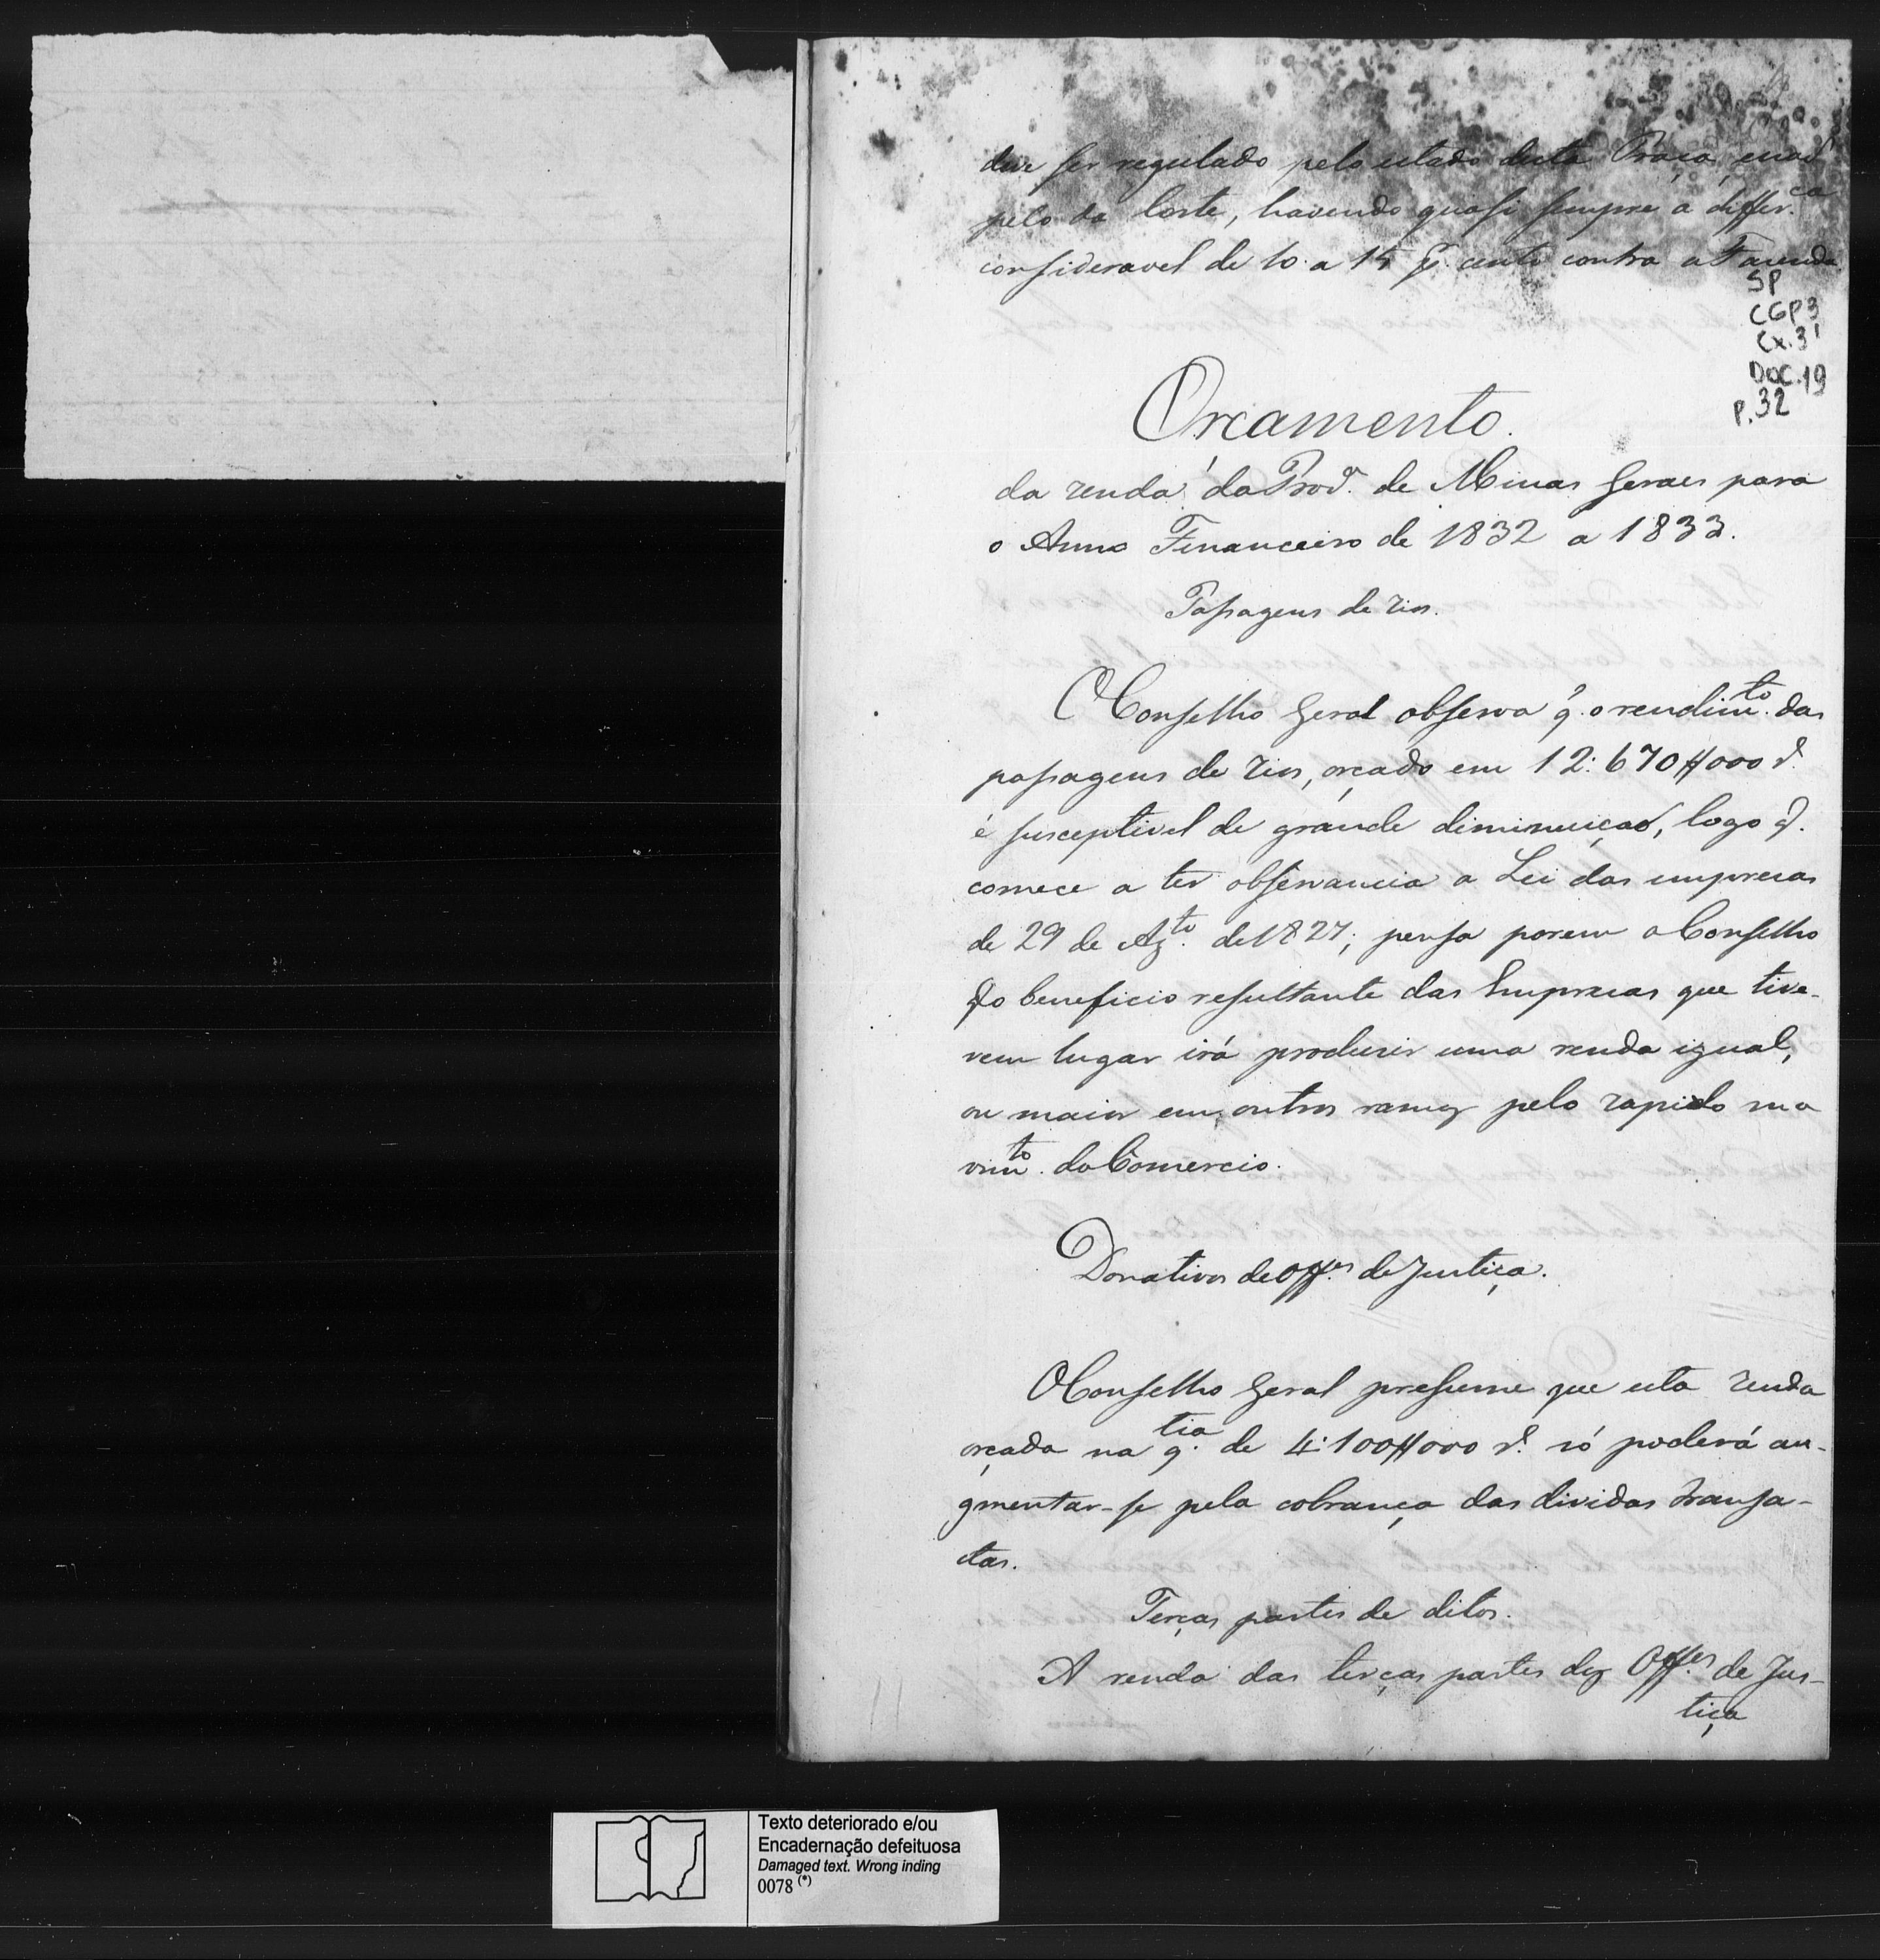 deve ser regulado pelo estado desta Praça, e naõ
pelo da Corte, havendo quasi sempre a differ.ça
consideravel de 10. a 15 p. cento contra a Fazenda.
SP
CGP3
Cx.31
DOC.19
P.32
Orçamento.
da renda da Prov.ª de Minas Geraes para
o Anno Financeiro de 1832 a 1833.
Passagens de rios.
O Conselho Geral observa q. o rendim.to das
passagens de rios, orçado em 12:670$000 r.
é susceptivel de grande diminuiçaõ, logo q.
comece a ter observancia a Lei das emprezas
de 29 de Ag.to de 1827; pensa porem o Conselho
q. o beneficio resultante das Emprezas que tive-
rem lugar irá produzir uma renda igual,
ou maior em outros ramos pelo rapido mo
vim.to do Comercio.
Donativos de Off.es de Justiça.
O Conselho Geral presume que esta renda
orçada na q.tia de 4:100$000 r. só poderá au-
gmentar-se pela cobrança das dividas transa-
ctas.
Terças partes de ditos.
A renda das terças partes dos Off.es de Jus-
tiça
Texto deteriorado e/ou
Encadernação defeituosa
Damaged text. Wrong inding
0078 (*)